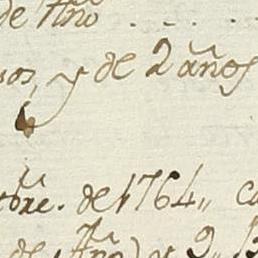 de Año . . . .
sos, y de 2 años
bre. de 1764,, ca
de Año) y 9,,